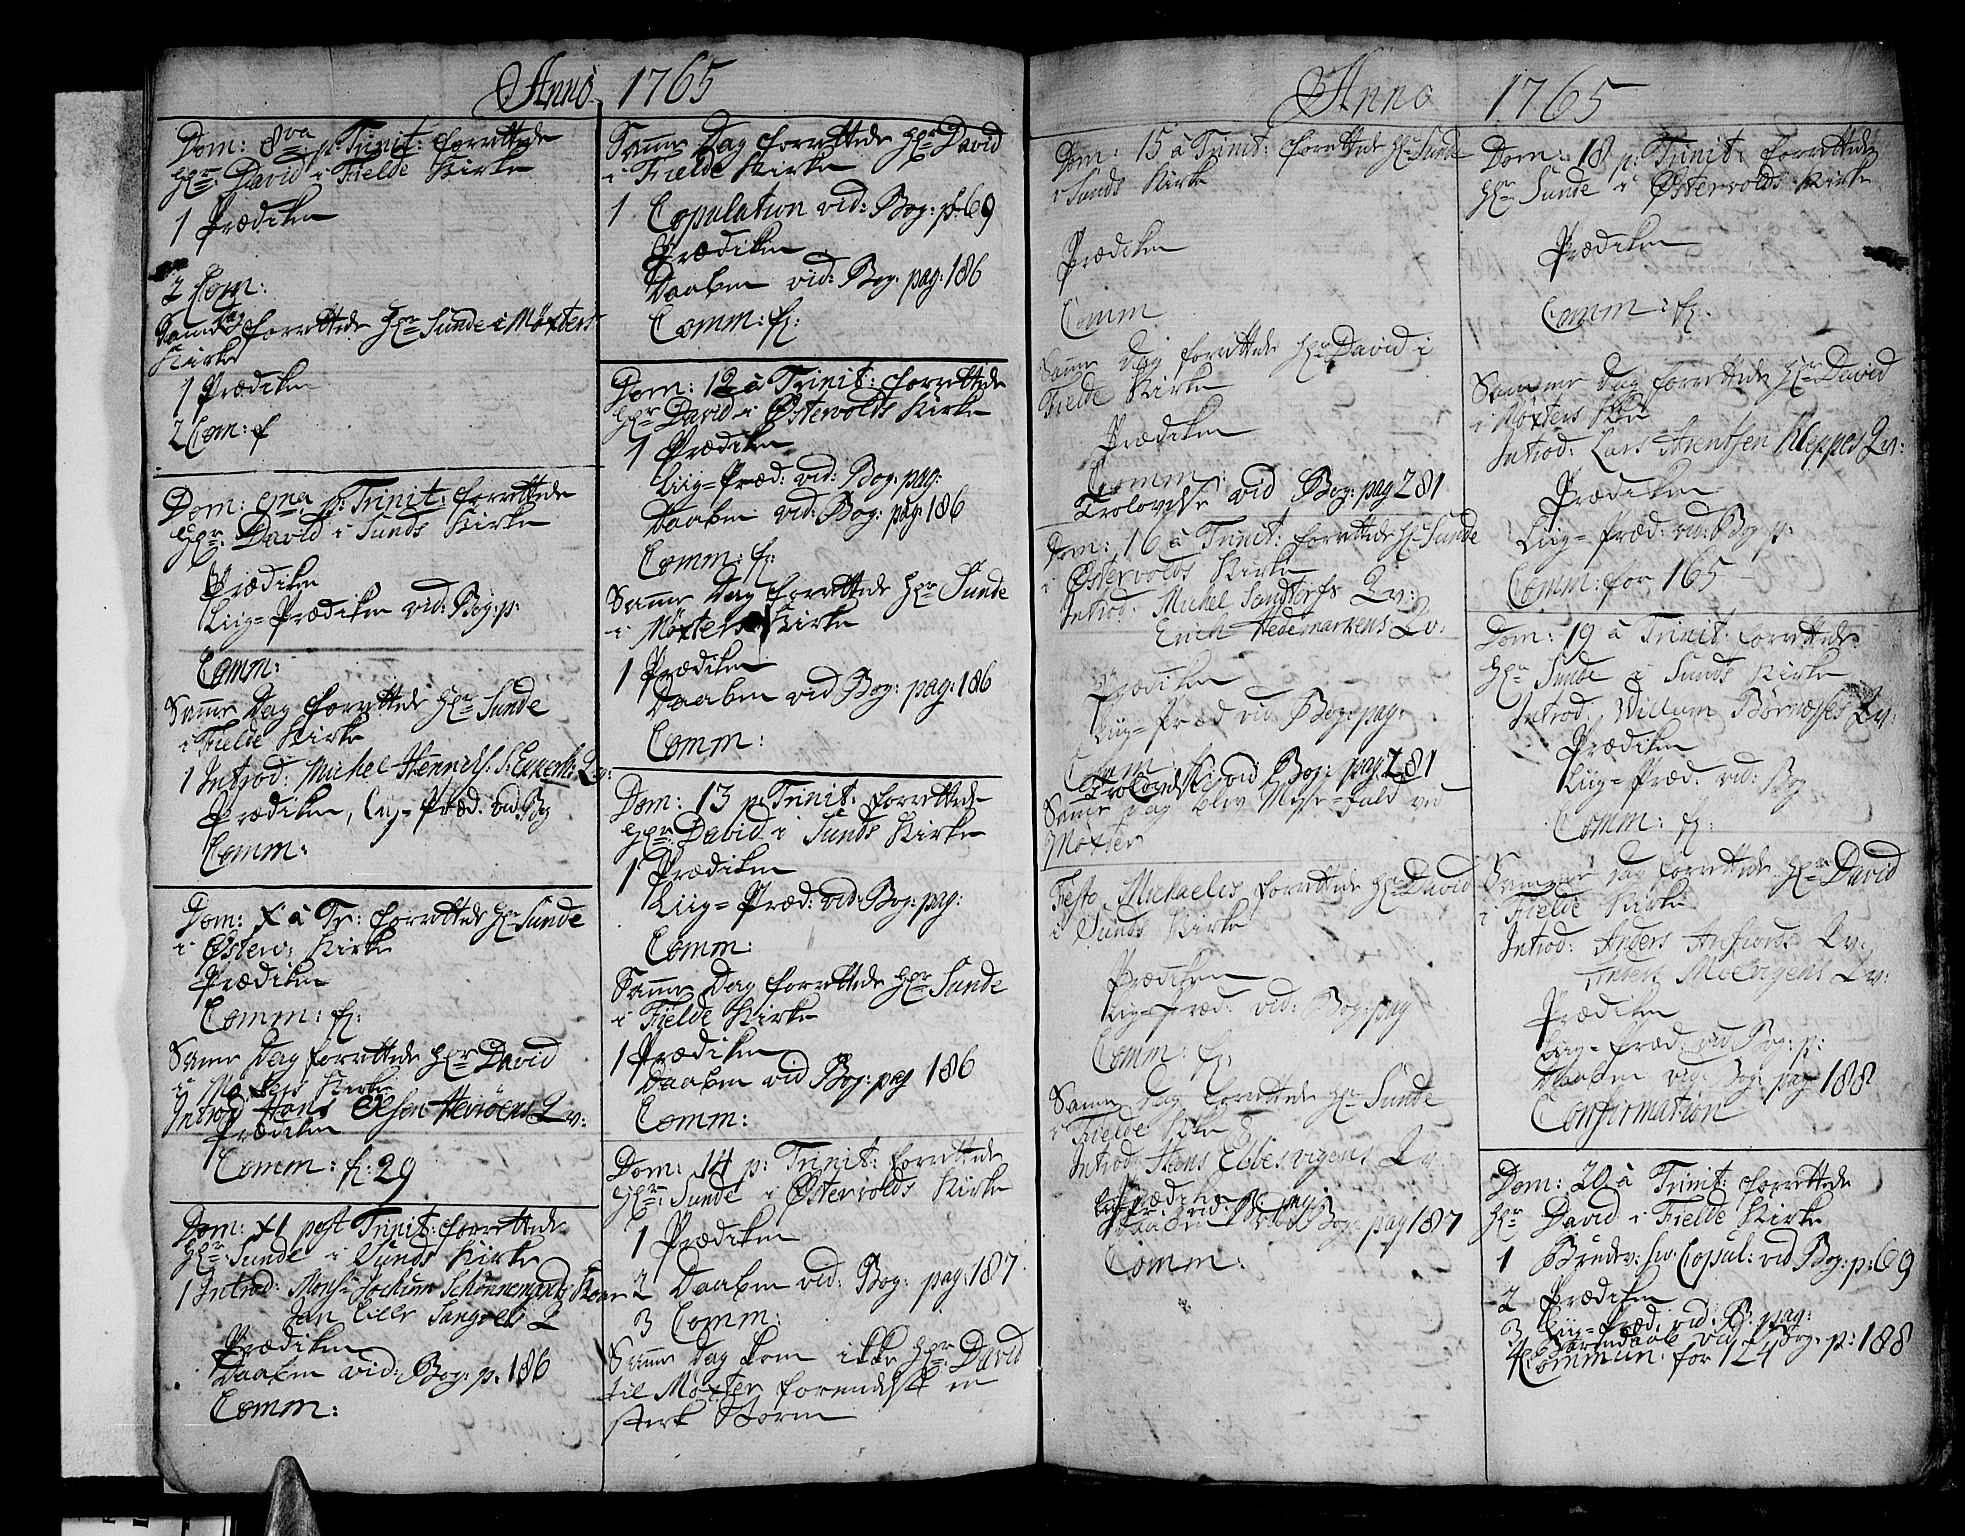 Anno 1765
Dom: 8va p: Trinit: forrettede
Hr: David i Fielde Kirke
1 Prædiken
2 Com:
Samme Dag forrettede Hr Sunde i Møxters
Kirke
1 Prædiken
2 Com: f
Dom: 9na p: Trinit: forrettede
Hr: David i Sunds Kirke
Prædiken
Liig=Prædiken vid: Bog: p:
Comm:
Samme Dag forrettede Hr Sunde
i Fielde Kirke
1 Introd: Michel Qv:
Prædiken, Liig=Præd: vid: Bog
Comm:
Dom: X à Tr: forrettede Hr Sunde
i Østerv: Kirke
Prædiken
Comm: f:
Samme Dag forrettede Hr David
i Møxters Kirke
Introd Hans Olsen Hevrøens Qv:
Prædiken
Comm: f: 29
Dom: XI post Trinit: forrettede
Hr: Sunde i Sunds Kirke
1 Introd: Monsr Jochum Schönnemands Koene
Jan Lille Qv
Prædiken
Daaben vid: Bog: p: 186
Comm:
Samme Dag forrettede Hr David
i Fielde Kirke
1 Copulation vid: Bog: p 69
Prædiken
Daaben vid: Bog: pag: 186
Comm: f:
Dom: 12 à Trinit: forrettede
Hr David i Østervolds Kirke
1 Prædiken
Liig=Præd: vid: Bog: pag:
Daaben vid: Bog: pag: 186
Comm: f:
Samme Dag forrettede Hr Sunde
i Møxters Kirke
1 Prædiken
Daaben vid Bog: pag: 186
Comm:
Dom: 13 p: Trinit: forrettede
Hr: David i Sunds Kirke
1 Prædiken
Liig=Præd: vid: Bog: pag:
Comm:
Samme Dag forrettede Hr Sunde
i Fielde Kirke
1 Prædiken
Daaben vid Bog: pag 186
Comm:
Dom: 14 p: Trinit: forrettede
Hr: Sunde i Østervolds Kirke
1 Prædiken
2 Daaben vid: Bog: pag: 187
3 Comm:
Samme Dag kom ikke Hr: David
til Møxter formedelst en
sterk Storm
Anno 1765
Dom: 15 à Trinit: forrettede Hr Sunde
i Sunds Kirke
Prædiken
Comm
Samme Dag forrettede Hr David i
Fielde Kirke
Prædiken
Comm:
Trolovelse vid Bog: pag 281
Dom: 16 à Trinit: forrettede Hr Sunde
i Østervolds Kirke
Introd: Michel Qv:
Erich Hedemarkens Qv:
Prædiken
Liig=Præd vid: Bog: pag:
Comm:
Trolovelse vid: Bog: pag 281
Samme Dag blev Messe=Fald ved
Møxter
Festo Michaelis forrettede Hr David
i Sunds Kirke
Prædiken
Liig=Præd: vid: Bog: pag
Comm: f:
Samme Dag forrettede Hr Sunde
i Fielde Kirke
Introd: Hans Ebbesvigens Qv:
Prædiken
Daaben vid Bog: pag 187
Comm:
Dom: 18 p: Trinit: forrettede
Hr Sunde i Østervolds Kirke
Prædiken
Comm: f:
Samme Dag forrettede Hr David
i Møxters Kirke
Introd: Lars Arentsen Kleppes Qv:
Prædiken
Liig=Præd: vid: Bog p:
Comm: for 165
Dom: 19 à Trinit: forrettede
Hr Sunde i Sunds Kirke
Introd. Willum Børnæsses Qv:
Prædiken
Liig=Præd: vid: Bog
Comm: f:
Samme Dag forrettede Hr David
i Fielde Kirke
Introd: Anders Qv:
Anders Moevigens Qv:
Prædiken
Liig=Præd: vid Bog: p:
Daaben vid: Bog: pag 188
Confirmation
Dom: 20 à Trinit: forrettede
Hr David i Fielde Kirke
1 Brudev: sw: Copul: vid Bog: p: 69
2 Prædiken
3 Liig=Præd: vid: B: pag:
4 Barnedaab vid Bog: p: 188
Commun: for 124